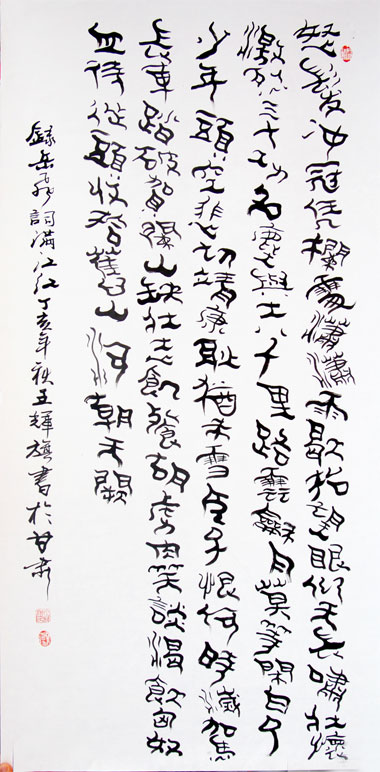 怒髮沖冠凭欄處瀟瀟雨歇抬望眼仰天長嘯壯懷
激烈三十功名塵與土八千里路雲龢月莫等閑白了
少年頭空悲切靖康耻猶未雪臣子恨何時滅駕
長車踏破賀蘭山缺壯志飢餐胡虜肉笑談渴飲匈奴
血待從頭收拾舊山河朝天闕
錄岳飛詞滿江紅丁亥年秋王輝旗書於甘肅